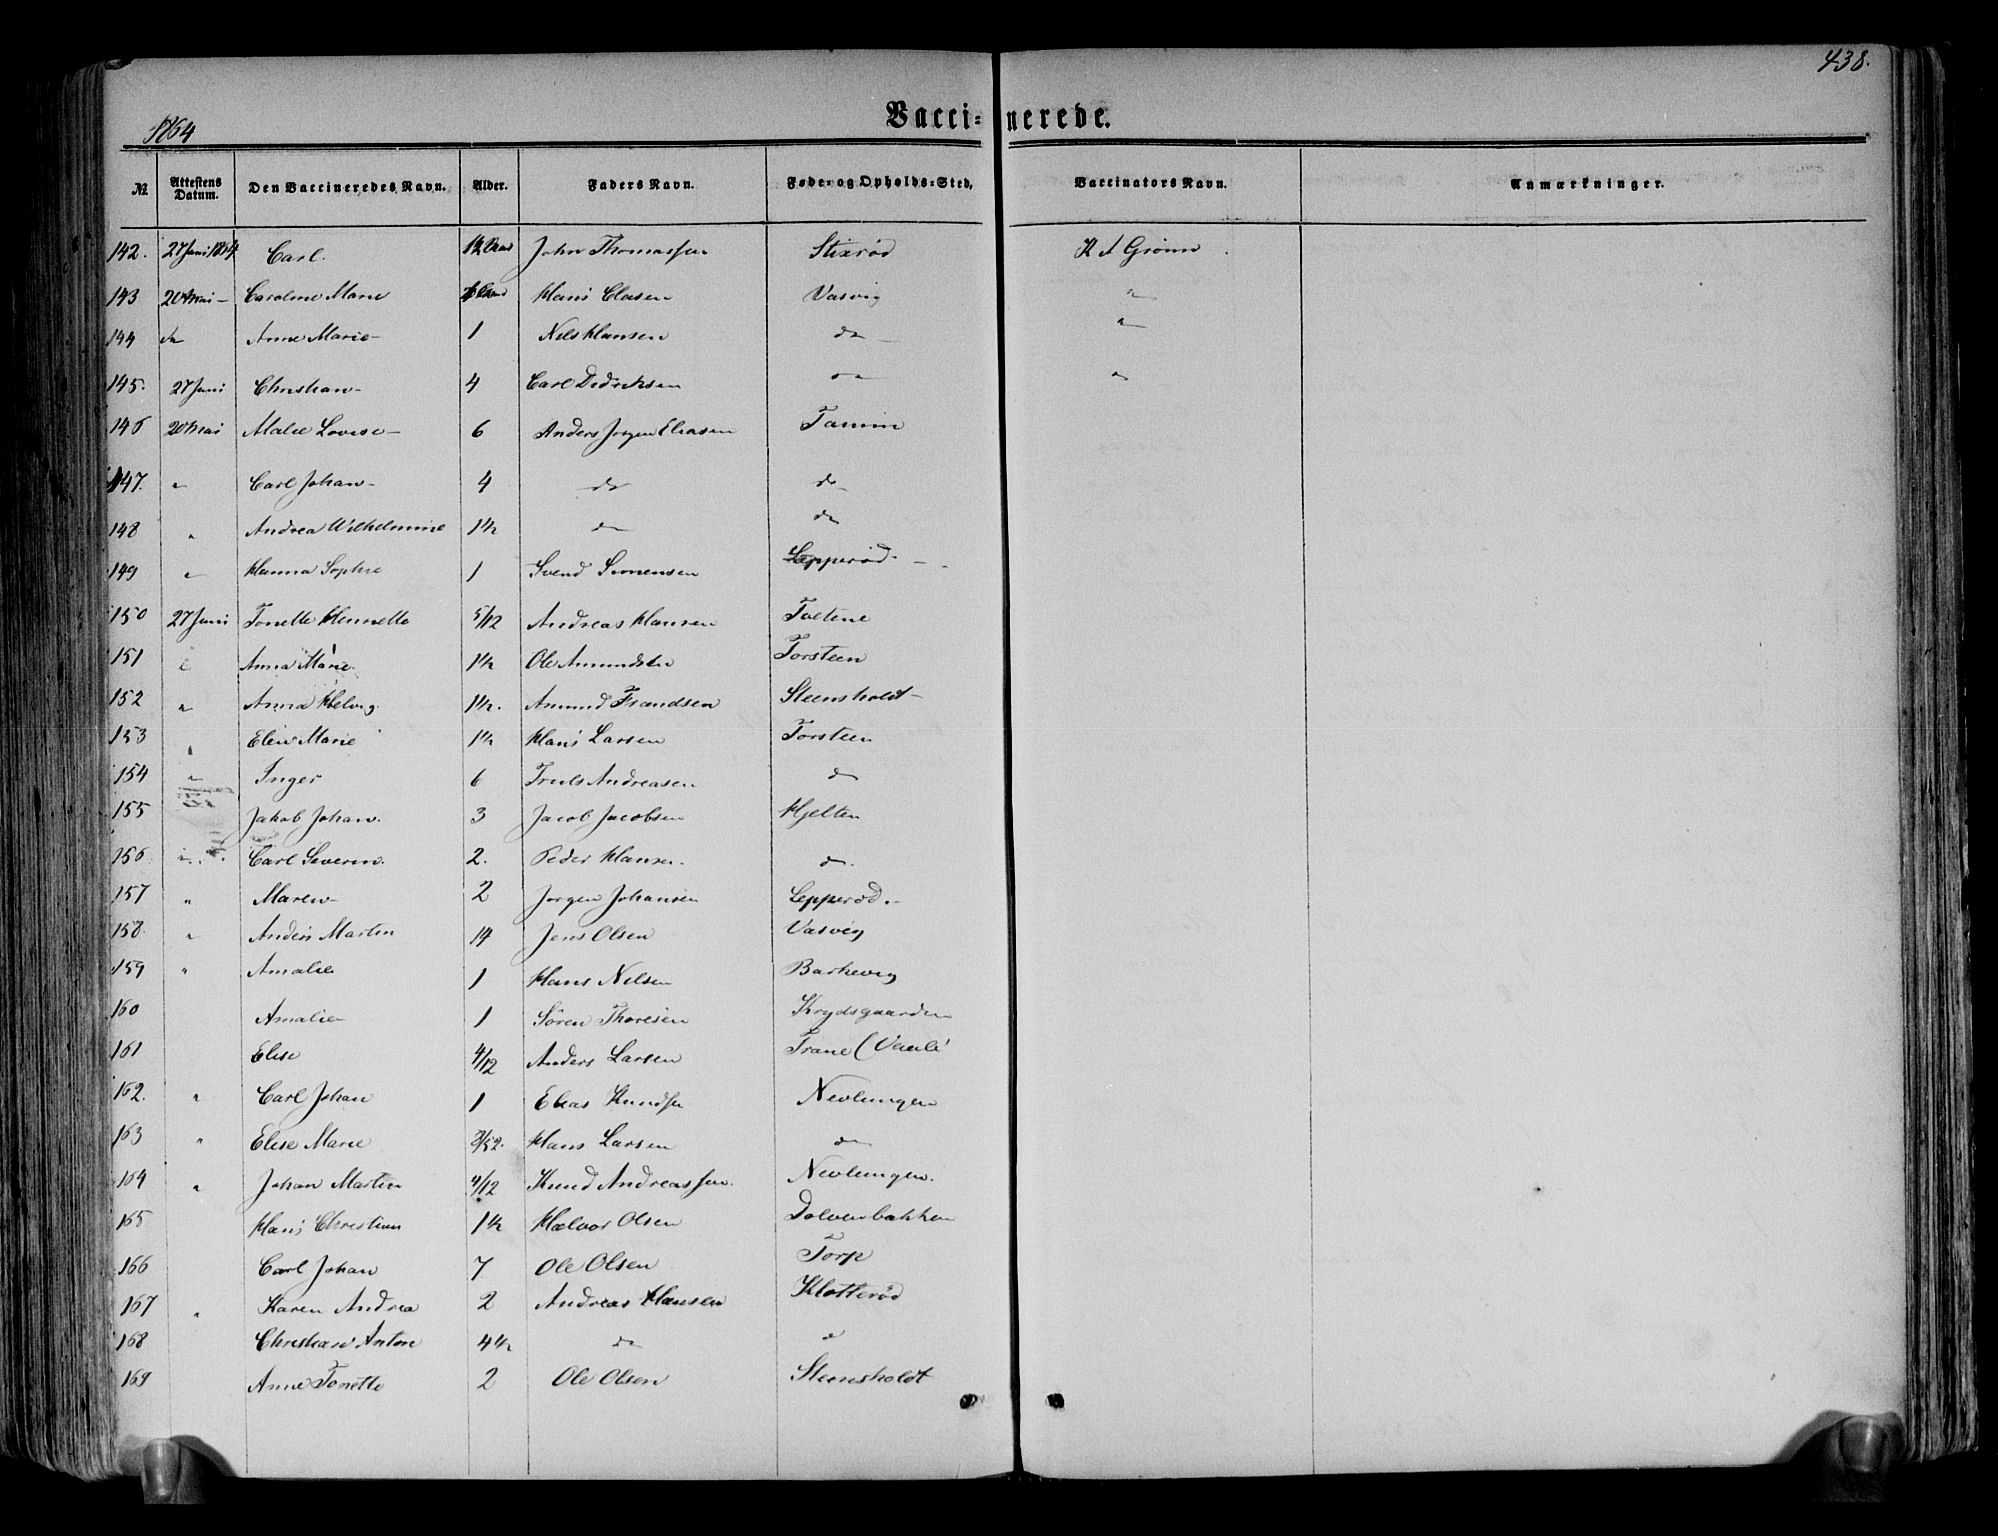 438.
1864
Vacci=nerede.
№ Attestens Datum. Den Vaccineredes Navn. Alder. Faders Navn. Føde- og Opholds-Sted. Vaccinators Navn. Anmærkninger.
142. 27 Juni 1864 Carl. 1½ John Thomassen Stixrød K A Grønn
143 20 Mai – Caroline Marie Hans Clasen Vasvig "
144 do Anne Marie – 1 Nels Hansen do "
145. 27 Juni Christian – 4 Carl Dedreksen do "
146 20 Mai Malie Lovise – 6 Anders Jørgen Eliasen Tamim
147. " Carl Johan – 4 do do
148 " Andrea Wilhelmine 1½ do do
149 " Hanna Sophie 1 Svend Simensen Lepperød –
150 27 Juni Tonette Hennette 5/12 Andreas Hansen Tvetene
151 " Anna Marie 1½ Ole Amundsen Torsteen
152 " Anna Helvig 1½. Amund Frandsen Steensholdt –
153 " Elen Marie 1½ Hans Larsen Torsteen
154 " Inger 6 Truls Andreasen do
155 Jakob Johan. 3 Jacob Jacobsen Hjelten
156 " Carl Severin. 2. Peder Hansen. do.
157 " Maren – 2 Jørgen Johansen Lepperød. –
158. " Anders Martin 14 Jens Olsen Vasvig
159 " Amalie 1 Hans Nelsen Barkevig
160 Amalie 1 Søren Thoresen Krydsgaarden
161 Elise 4/12 Anders Larsen Trane (
162. " Carl Johan 1 Elias Knudsen Nevlungen
163 " Elise Marie 3/52. Hans Larsen do
164 " Johan Martin 4/12 Knud Andreassen. Nevlungen.
165 Hans Christian 1½ Halvor Olsen Dolvenbakken
166 Carl Johan 7 Ole Olsen Torp
167 " Karen Andrea 2 Andreas Hansen Klotterød
168 Christian Anton 4½ do d
169 Anne Tonette 2 Ole Olsen Steensholdt